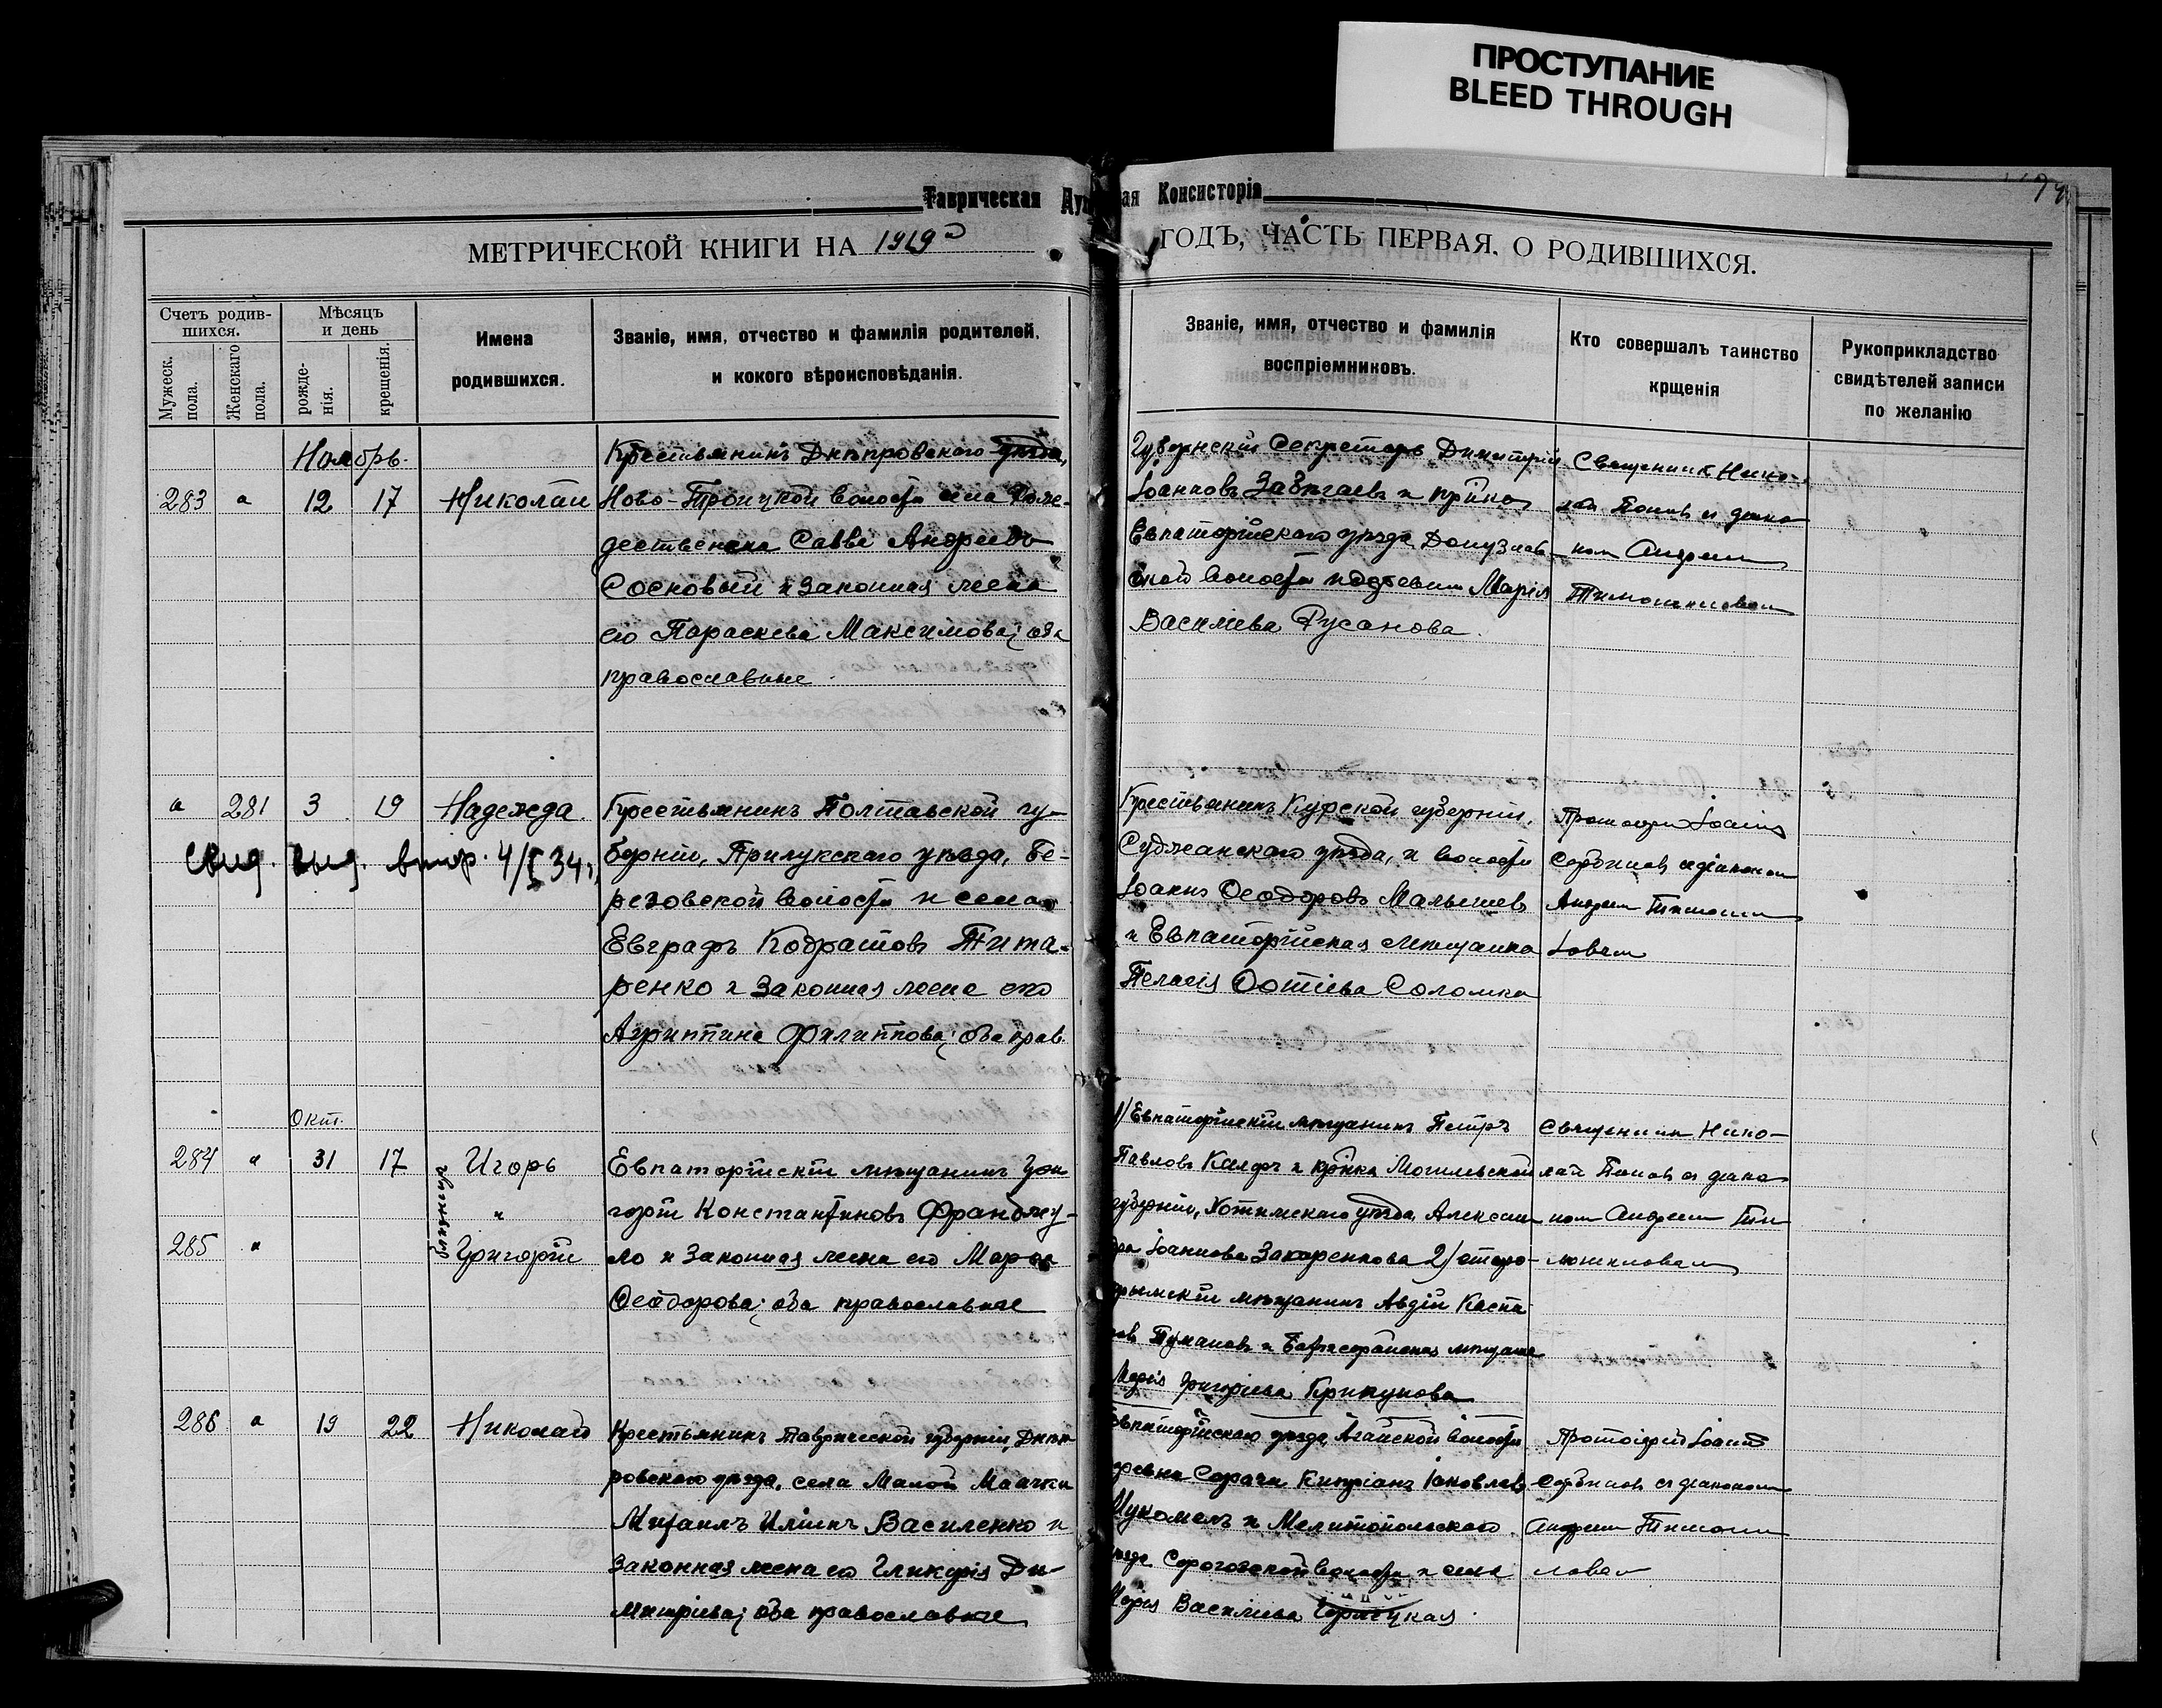 ПРОСТУПАНИЕ
BLEED THROUGH
Таврическая Дух ая Консисторія
МЕТРИЧЕСКОЙ КНИГИ НА 1919 ГОДЪ, ЧАСТЬ ПЕРВАЯ, О РОДИВШИХСЯ.
Счетъ родив-
шихся.
Мужеск. пола.
Женскаго пола.
Мѣсяцъ
и день
рожде-
нія.
крещенія.
Имена
родившихся.
Званіе, имя, отчество и фамилія родителей,
и кокого вѣроисповѣданія.
Званіе, имя, отчество и фамилія
воспріемниковъ.
Кто совершалъ таинство
крщенія
Рукоприкладство
свидѣтелей записи
по желанію
Ноябрь.
283 " 12 17 Николай
Крестьянинъ Днѣпровскаго уѣзда,
Ново-Троицкой волости села Рож-
дественска Савва Андреевъ
Сосновый и законная жена
его Параскева Максимова; оба
православные.
Губернскій Секретарь Димитрій
Іоанновъ
Евпаторійскаго уѣзда Донузлав-
ской волости Марія
Василіева Русанова.
Священник Нико-
лай Попов с діако-
ном Андреем
" 281 3 19 Надежда.
свид. выд. 4/I 34 г.
Крестьянинъ Полтавской гу-
берніи, Прилукскаго уѣзда, Бе-
резовской волости и села
Евграфъ Кодратовъ Тита-
ренко и законная жена его
Агриппина Филиппова; оба прав.
Крестьянинъ Курской губерніи,
Суджанскаго уѣзда, и волости
Іоаннъ Ѳеодоровъ Малышевъ
и Евпаторійская мѣщанка
Пелагія Фотіева Соломка
Протоіерей Іоаннъ
Сербиновъ с діаконом
Андреем
Окт.
284 " 31 17 Игорь
близнецы
"
285 " Григорій
Евпаторійскій мѣщанинъ Гри
горій Константиновъ Франджу-
ло и законная жена его Марѳа
Ѳеодорова; оба православные
1/ Евпаторійскій мѣщанинъ Петръ
Павловъ Могилевской
губерніи, уѣзда Алексан
дра Іоаннова Захаренкова 2/ старо-
крымскій мѣщанинъ Авдій Каспа
ровъ Тумановъ и мѣщанка
Марія Григоріева Крикунова
Священник Нико-
лай Попов с діако
ном Андреем Ти-
286 " 19 22 Николай
Крестьянинъ Таврической губерніи, Днѣп-
ровскаго уѣзда, села Малой Маячки
Михаилъ Иліинъ Василенко и
законная жена его Гликерія Ди-
митріева; оба православные
Евпаторійскаго уѣзда, Агайской волости
деревни Кипріанъ Іаковлевъ
Мукомелъ и Мелитопольскаго
уѣзда Серогозской волости и села
Марія Василіева
Протоіерей Іоаннъ
Сербиновъ с діаконом
Андреем